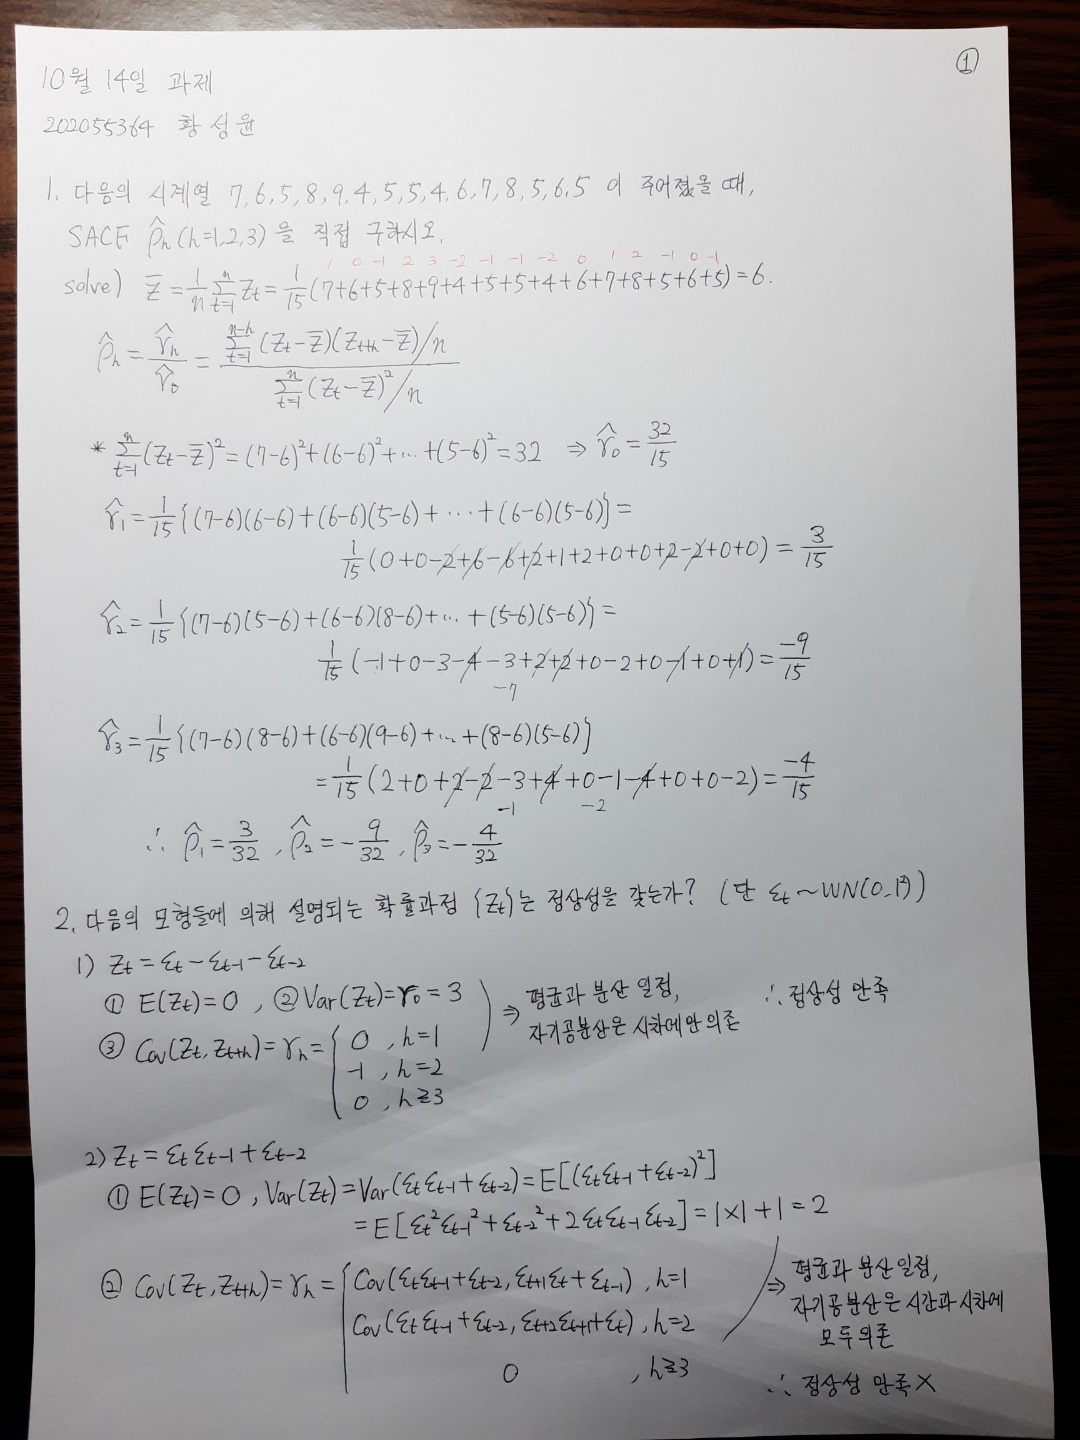 ①
10월 14일 과제
202055364 황성윤
1. 다음의 시계열 7,6,5,8,9,4,5,5,4,6,7,8,5,6,5 이 주어졌을 때,
SACF ρ̂h (h=1,2,3)을 직접 구하시오.
1 0 -1 2 3 -2 -1 -1 -2 0 1 2 -1 0 -1
solve) z̄ = 1/n Σ(t=1→n) Zt = 1/15 (7+6+5+8+9+4+5+5+4+6+7+8+5+6+5) = 6.
ρ̂h = γ̂h/γ̂0 = {Σ(t=1→n-h) (Zt-z̄)(Zt+h-z̄)/n} / {Σ(t=1→n) (Zt-z̄)²/n}
* Σ(t=1→n) (Zt-z̄)² = (7-6)²+(6-6)²+…+(5-6)² = 32 ⇒ γ̂0 = 32/15
γ̂1 = 1/15 {(7-6)(6-6)+(6-6)(5-6)+…+(6-6)(5-6)} =
1/15 (0+0-2+6-6+2+1+2+0+0+2-2+0+0) = 3/15
γ̂2 = 1/15 {(7-6)(5-6)+(6-6)(8-6)+…+(5-6)(5-6)} =
1/15 (-1+0-3-4-3+2+2+0-2+0-1+0+1) = -9/15
-7
γ̂3 = 1/15 {(7-6)(8-6)+(6-6)(9-6)+…+(8-6)(5-6)}
= 1/15 (2+0+2-2-3+4+0-1-4+0+0-2) = -4/15
-1 -2
∴ ρ̂1 = 3/32, ρ̂2 = -9/32, ρ̂3 = -4/32
2. 다음의 모형들에 의해 설명되는 확률과정 {Zt}는 정상성을 갖는가? (단 εt ~ WN(0,1²))
1) Zt = εt - εt-1 - εt-2
① E(Zt)=0, ② Var(Zt)=γ0=3 ⇒ 평균과 분산 일정, ∴ 정상성 만족
자기공분산은 시차에만 의존
③ Cov(Zt, Zt+h) = γh = { 0, h=1
-1, h=2
0, h≥3
2) Zt = εtεt-1 + εt-2
① E(Zt)=0, Var(Zt)=Var(εtεt-1+εt-2)=E[(εtεt-1+εt-2)²]
=E[εt²εt-1²+εt-2²+2εtεt-1εt-2]=1×1+1=2
② Cov(Zt, Zt+h) = γh = { Cov(εtεt-1+εt-2, εt+1εt+εt-1), h=1
Cov(εtεt-1+εt-2, εt+2εt+1+εt), h=2
0, h≥3
⇒ 평균과 분산일정,
자기공분산은 시간과 시차에
모두 의존
∴ 정상성 만족 X